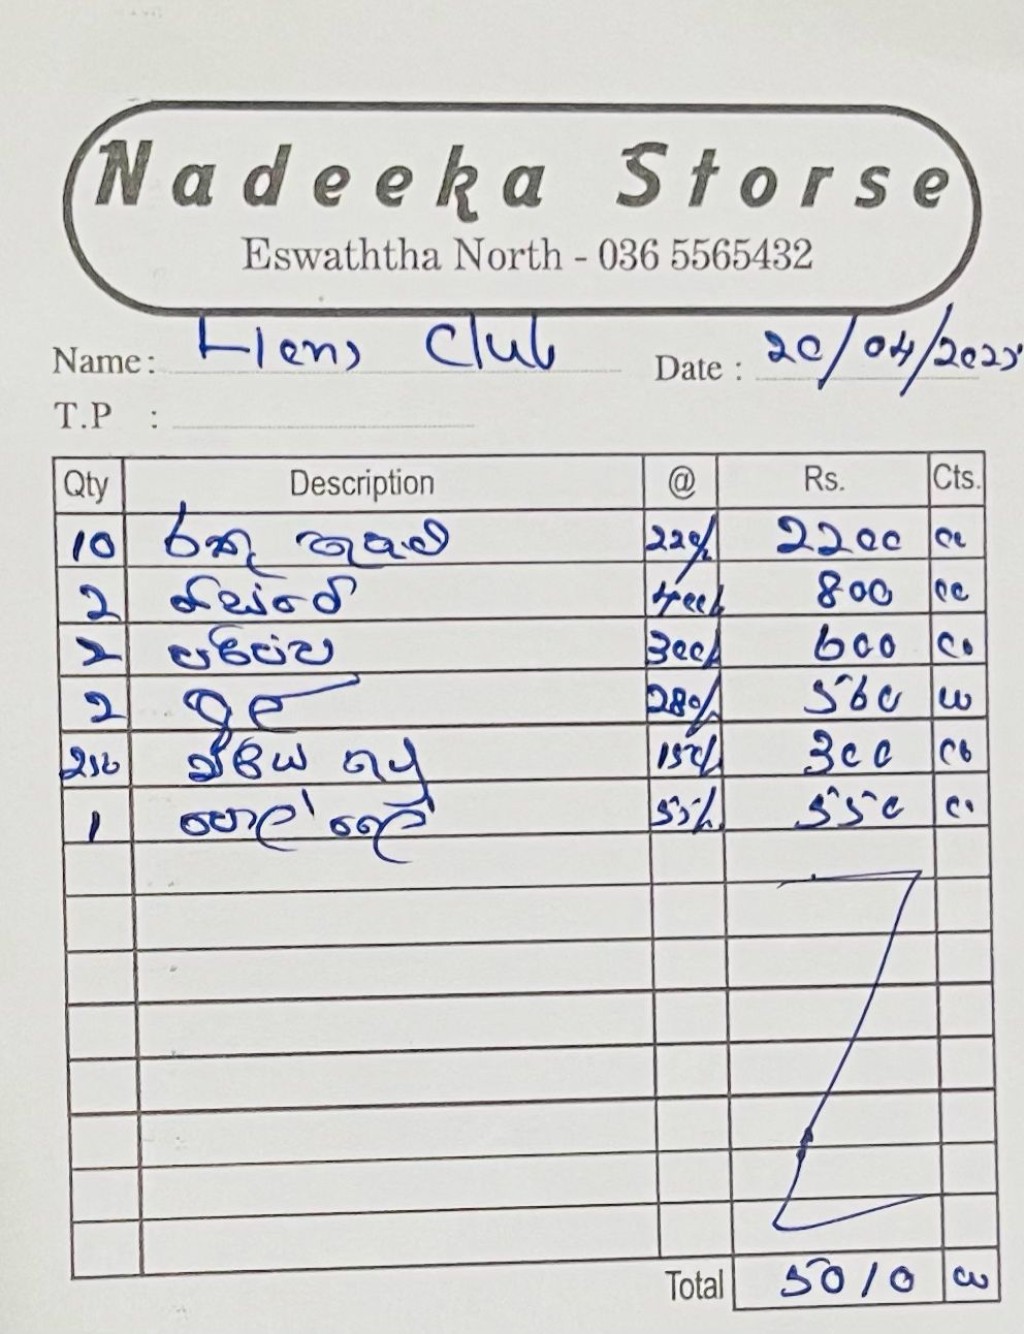 Nadeeka Storse
Eswaththa North - 036 5565432
Name : Lions Club Date : 20/04/2025
T.P :
Qty Description @ Rs. Cts.
10 රතු කැකුළු 220/- 2200 00
2 400/- 800 00
2 පරිප්පු 300/- 600 00
2 280/- 560 00
2 150/- 300 00
1 පොල් තෙල් 550/- 550 00
Total 5010 00